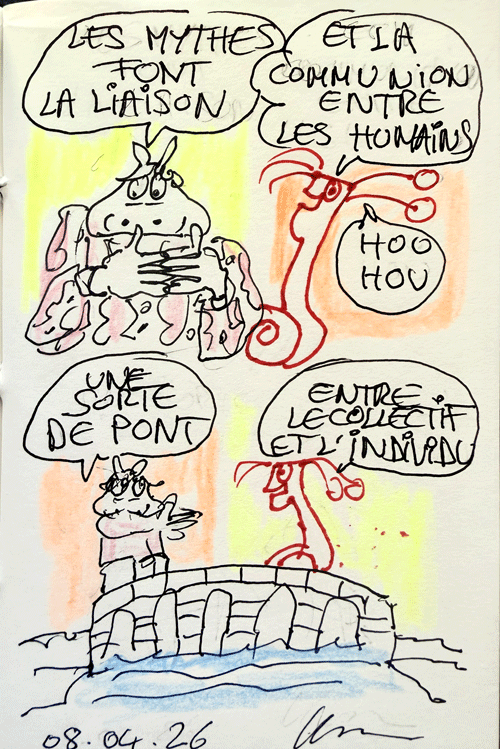 LES MYTHES
FONT
LA LIAISON
ET LA
COMMUNION
ENTRE
LES HUMAINS
HOO
HOU
UNE
SORTE
DE PONT
ENTRE
LE COLLECTIF
ET L'INDIVIDU
08.04.26